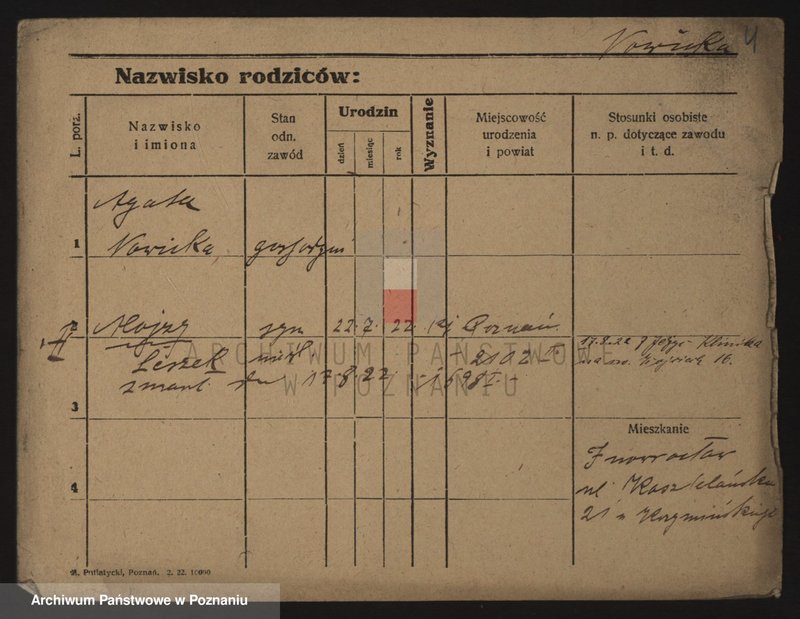 Nowicka 4
Nazwisko rodziców:
L. porz.
Nazwisko
i imiona
Stan
odn.
zawód
Urodzin
dzień
miesiąc
rok
Wyznanie
Miejscowość
urodzenia
i powiat
Stosunki osobiste
n. p. dotyczące zawodu
i t. d.
Agata
1 Nowicka
2 Alojzy syn 22 7. 22 Poznań
Leszek
2102
zmarł 17.8.22
17.8.22 Klinika
16.
3
Mieszkanie
Inowrocław
4 ul Kasztelańska
21
A. Putiatycki, Poznań. 2. 22. 10000
ARCHIWUM PAŃSTWOWE
W POZNANIU
Archiwum Państwowe w Poznaniu